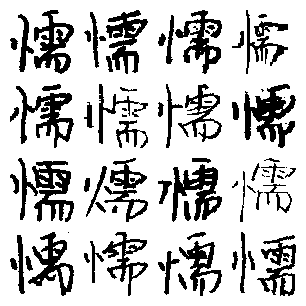 懦懦懦懦
懦懦懦懦
懦懦懦懦
懦懦懦懦